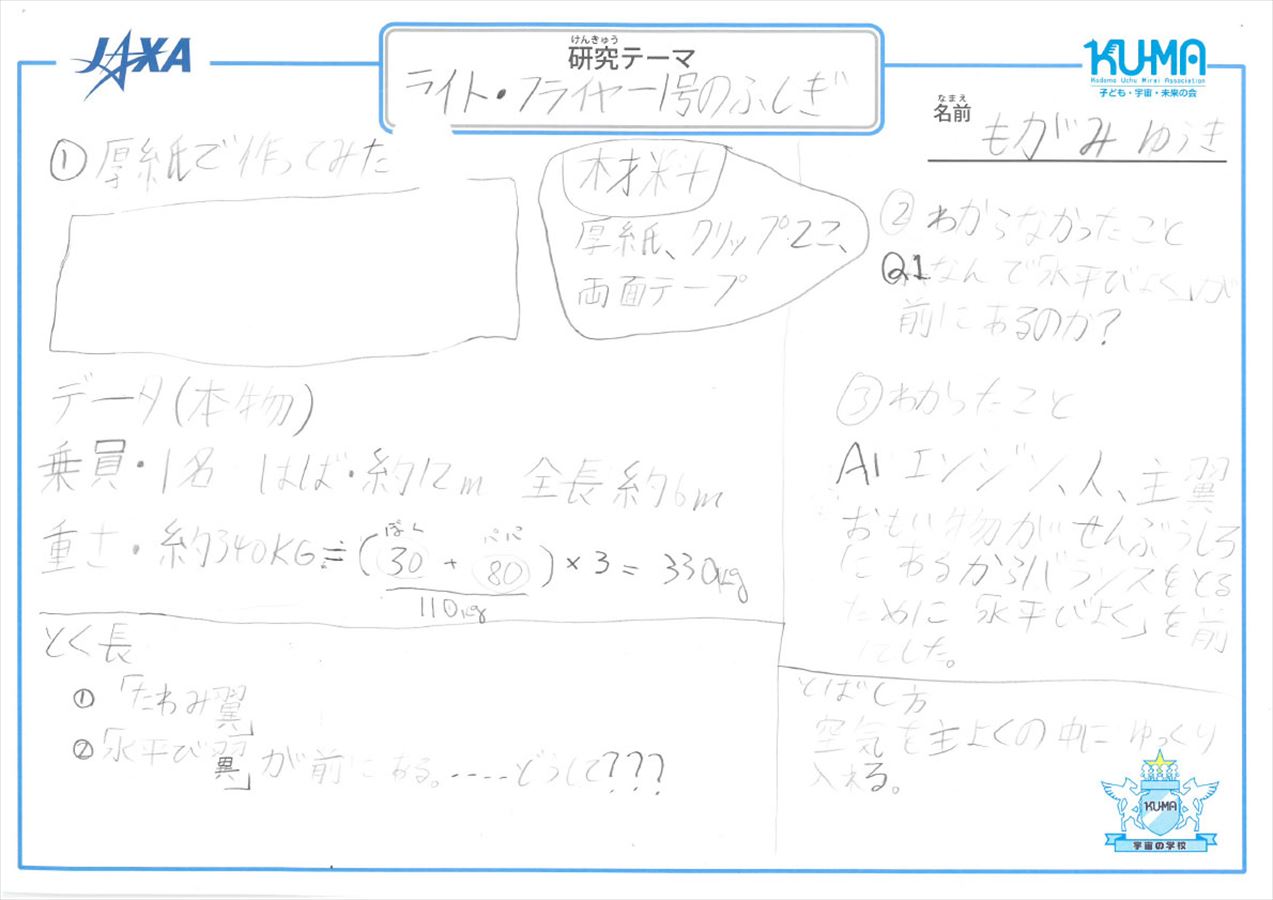 JAXA
けんきゅう
研究テーマ
ライト・フライヤー1号のふしぎ
KU-MA
Kodomo Uchu Mirai Association
子ども・宇宙・未来の会
なまえ
名前
もがみ ゆうき
① 厚紙で作ってみた
材料
厚紙、クリップ2こ、
両面テープ
データ(本物)
乗員・1名 はば・約12m 全長約6m
重さ・約340KG≒(30+80)×3=330kg
ぼく
パパ
110kg
とく長
①「たわみ翼」
②「水平び翼」が前にある。----どうして???
② わからなかったこと
Q1 なんで「水平びよく」が
前にあるのか?
③ わかったこと
A1 エンジン、人、主翼
おもい物がぜんぶうしろ
にあるからバランスをとる
ために「水平びよく」を前
にした。
とばし方
空気を主よくの中にゆっくり
入れる。
KU-MA
宇宙の学校